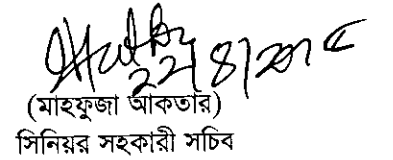 22/8/2018
(মাহফুজা আকতার)
সিনিয়র সহকারী সচিব